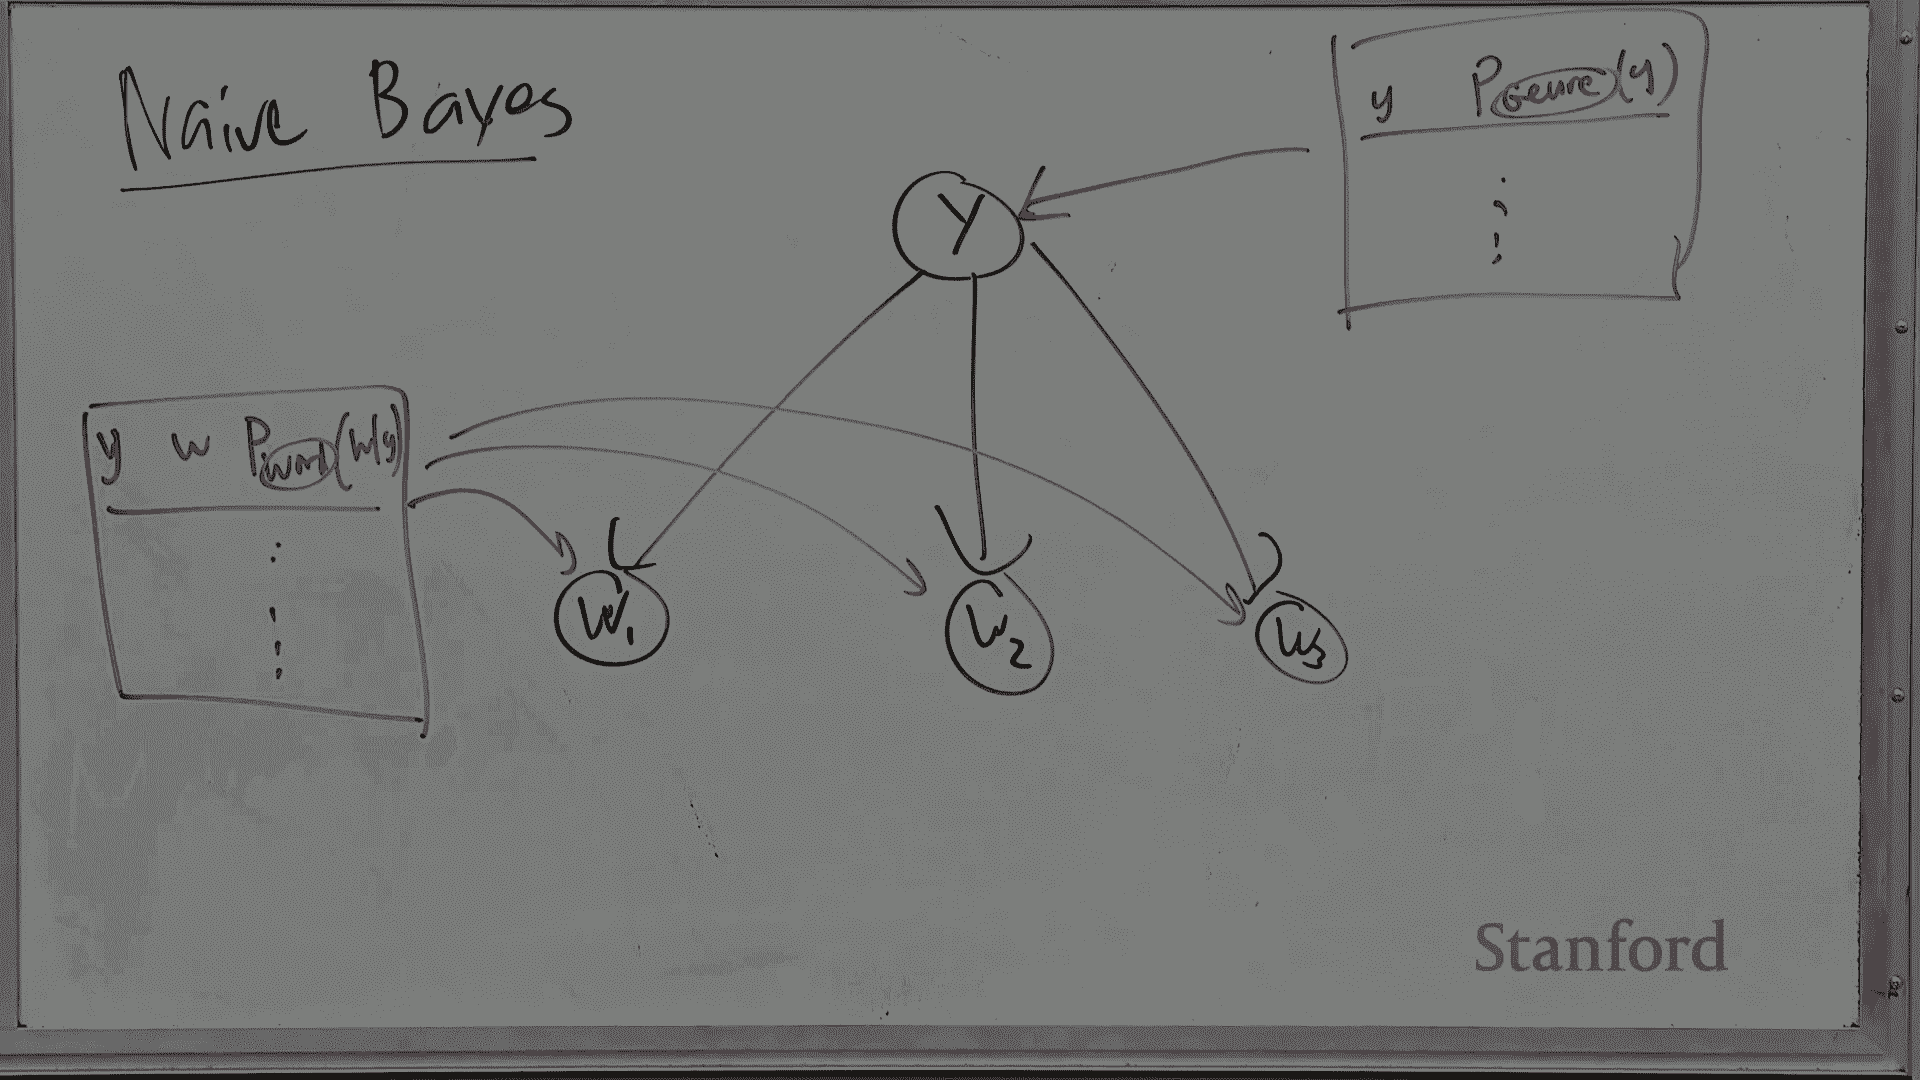 Naive Bayes
y P Genre (y)
Y
y w P word (w|y)
W1
W2
W3
Stanford